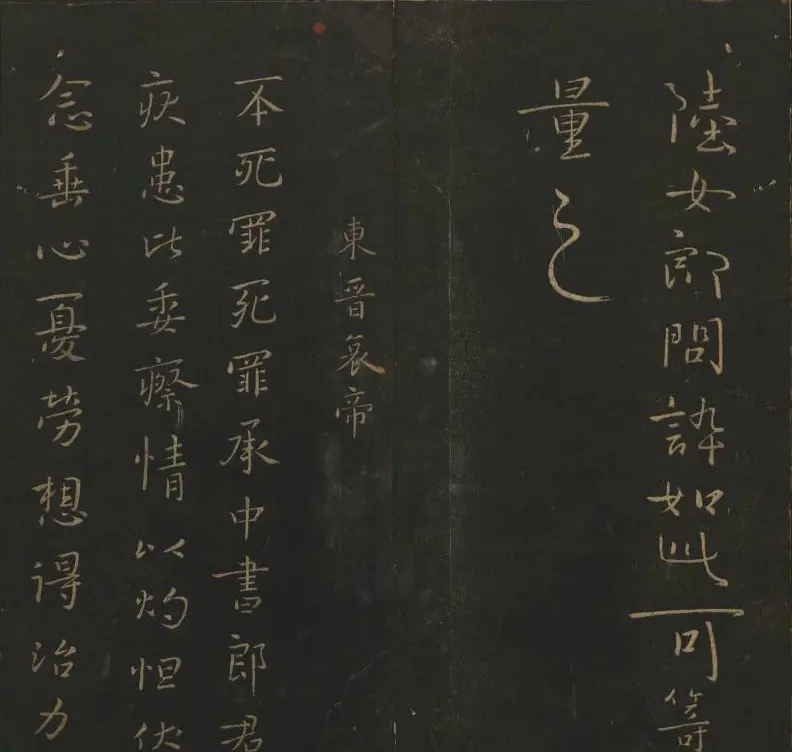 陸女郎問訃如此可籌
量之
東晉哀帝
丕死罪死罪承中書郎君
疾患比委瘵情以灼怛伏
念垂心憂勞想得治力